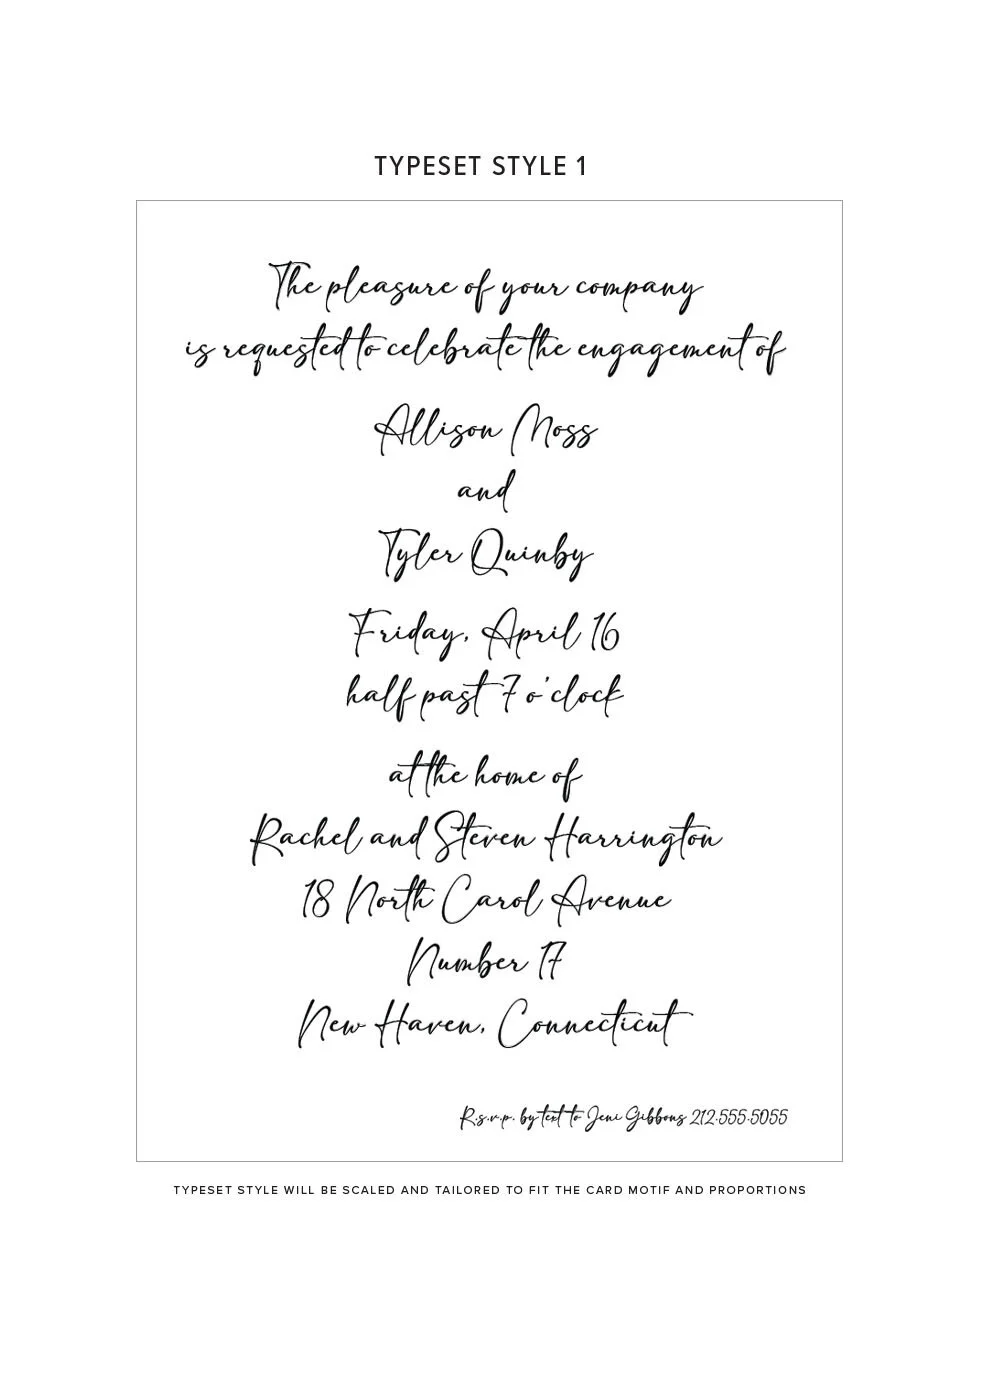 TYPESET STYLE 1
The pleasure of your company
is requested to celebrate the engagement of
Allison Moss
and
Tyler Quinby
Friday, April 16
half past 7 o'clock
at the home of
Rachel and Steven Harrington
18 North Carol Avenue
Number 17
New Haven, Connecticut
R.s.v.p. by text to Jeni Gibbons 212.555.5055
TYPESET STYLE WILL BE SCALED AND TAILORED TO FIT THE CARD MOTIF AND PROPORTIONS